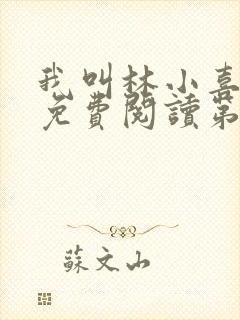 我叫林小喜
免費閱讀第
蘇文山